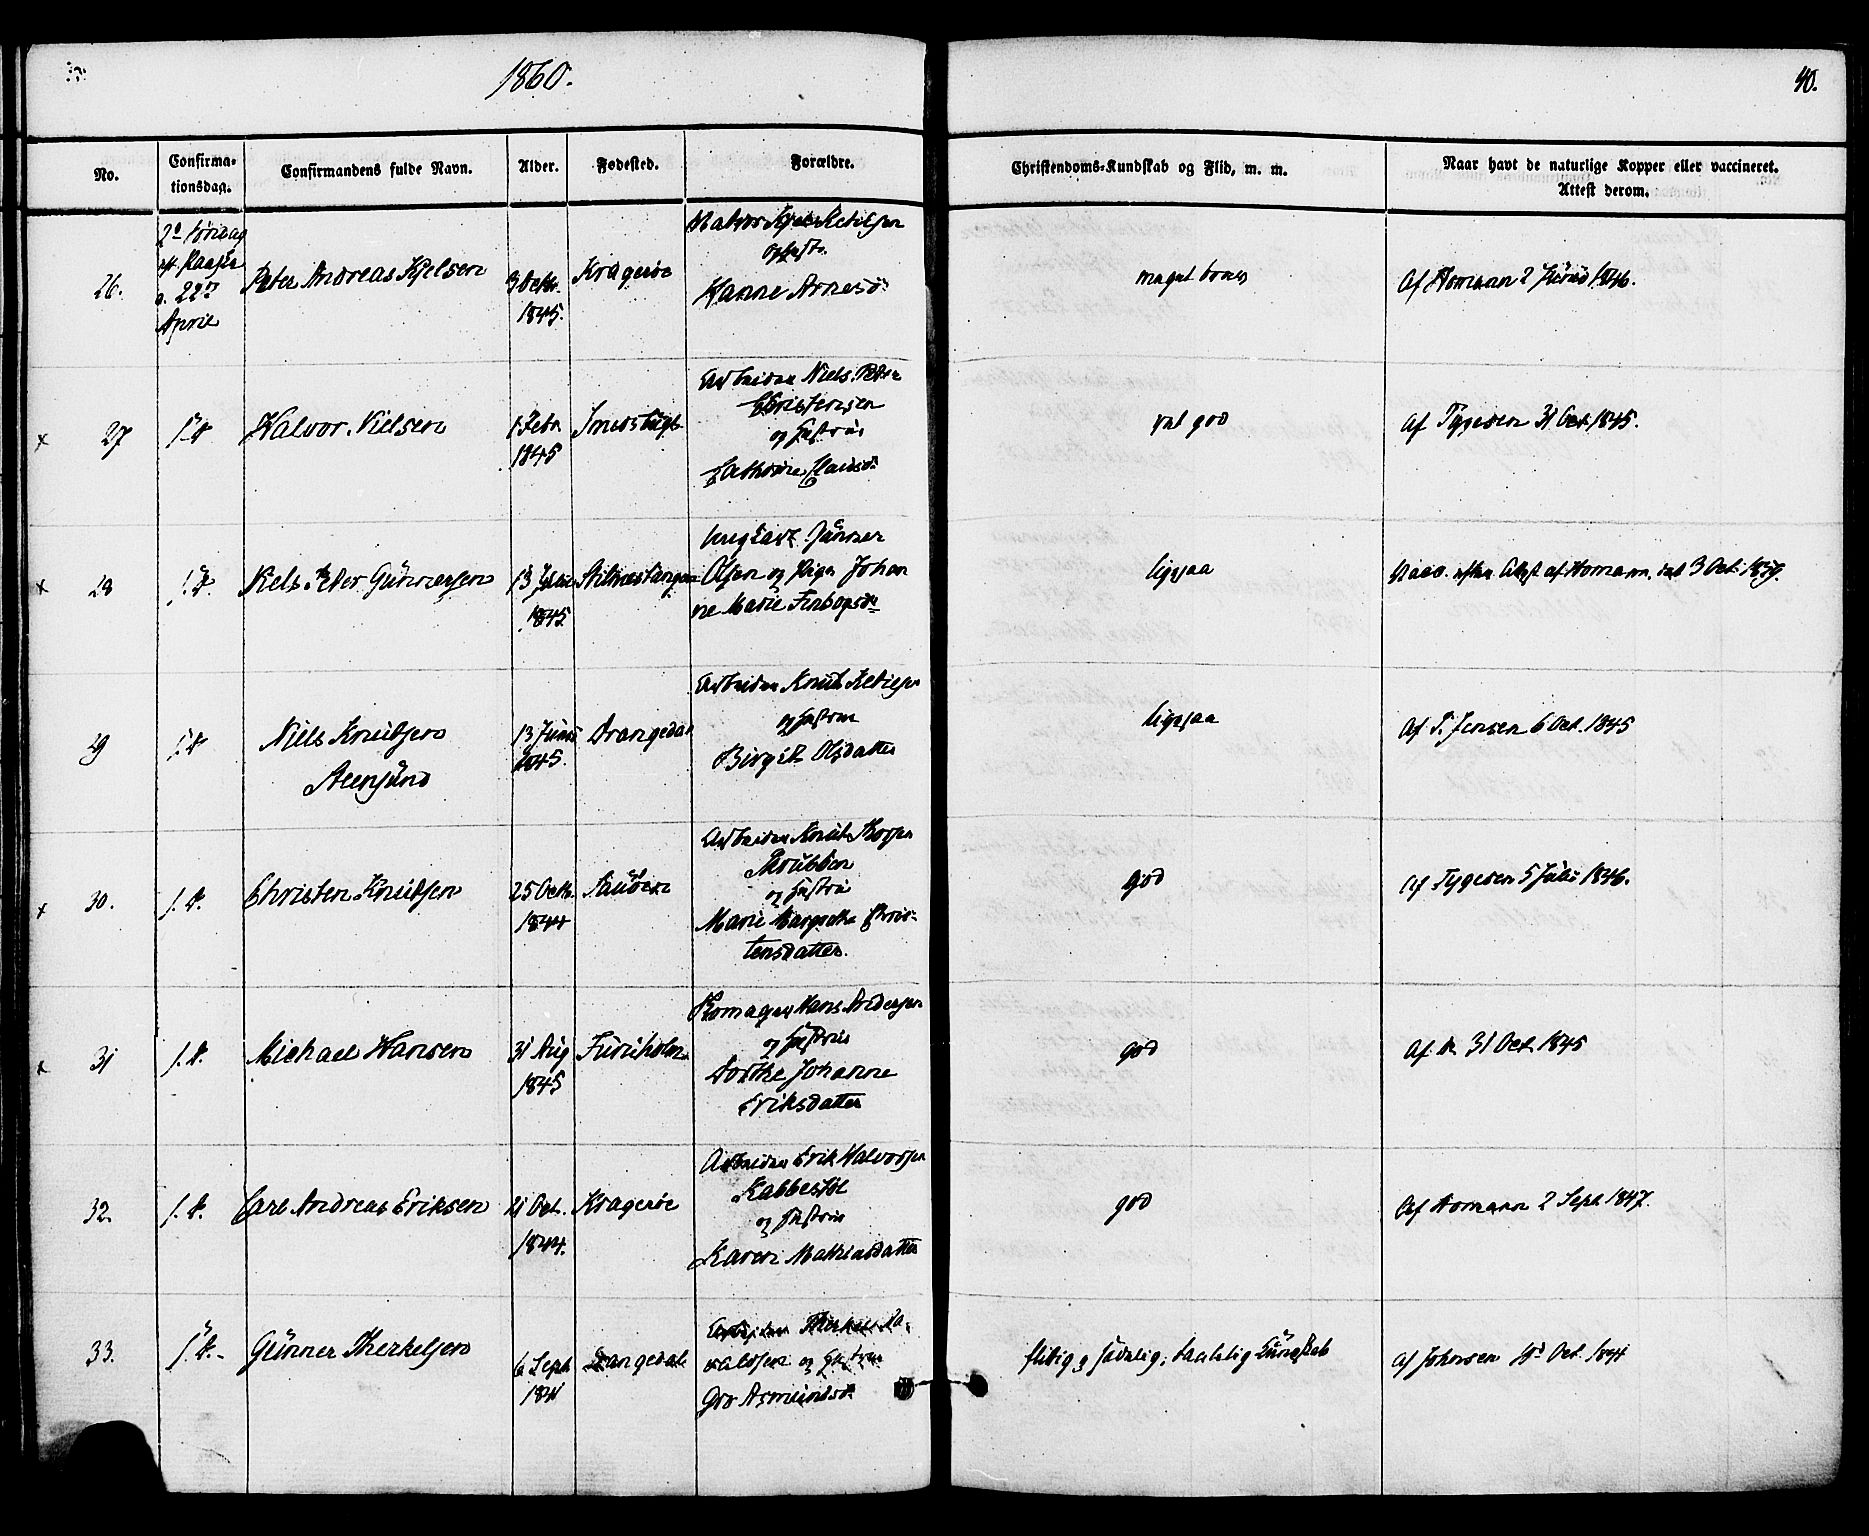 1860.
40.
No.
Confirma-
tionsdag.
Confirmandens fulde Navn.
Alder.
Fødested.
Forældre.
Christendoms-Kundskab og Flid, m. m.
Naar havt de naturlige Kopper eller vaccineret.
Attest derom.
26.
2d Søndag
eft. Paaske
d. 22d
April
Peter Andreas Kjelsen
3 Octb.
1845.
Kragerøe
Ketilsen
og Hustr.
Hanne Arnesd.
meget
Af Homann 2 1846.
x 27
S. D.
Halvor Nielsen
1 Febr.
1845
Arbeider Niels Peter
Christensen
og Hustrue
Cathrine
vel god
Af Tygesen 31 Oct. 1845.
x 28
S. D.
Niels Peder Gunnersen
13
1845.
Stilnestangen
Ungkarl Gunner
Olsen og Pige Johan
ne Marie Finbogsd.
ligesaa
efter Attest af Homann 3 Oct.
29
S. D.
Niels Knudsen
13 Juni
1845.
Drangedal
Arbeider Knud Ketilsen
og Hustrue
Birgit Olsdatter
ligesaa
Af T. Jensen 6 Oct. 1845
x 30.
S. D.
Christen Knudsen
25 Octb.
1844
Arbeider Knud
og Hustrue
Marie Margrethe Chris-
tensdatter.
god
Af Tygesen 5 Juli 1846.
x 31
S. D.
Michael Hansen
31 Aug
1845
Furuholm
Hans Andersen
og Hustrue
Dorthe Johanne
Eriksdatter
god
Af D. 31 Oct. 1845
32.
S. D.
Carl Andreas Eriksen
21 Oct.
1844.
Kragerøe
Arbeider Erik Halvorsen
Kabbestøl
og Hustrue
Karen Mathiasdatter
god
Af Homann 2 Sept. 1847.
33.
S. D.
Gunner Therkelsen
6 Sept
Drangedal
Arbeider
og Hustrue
Gro Asmundsd.
flittig og sædelig; taalelig Kundskab
Af Johnsen Oct.